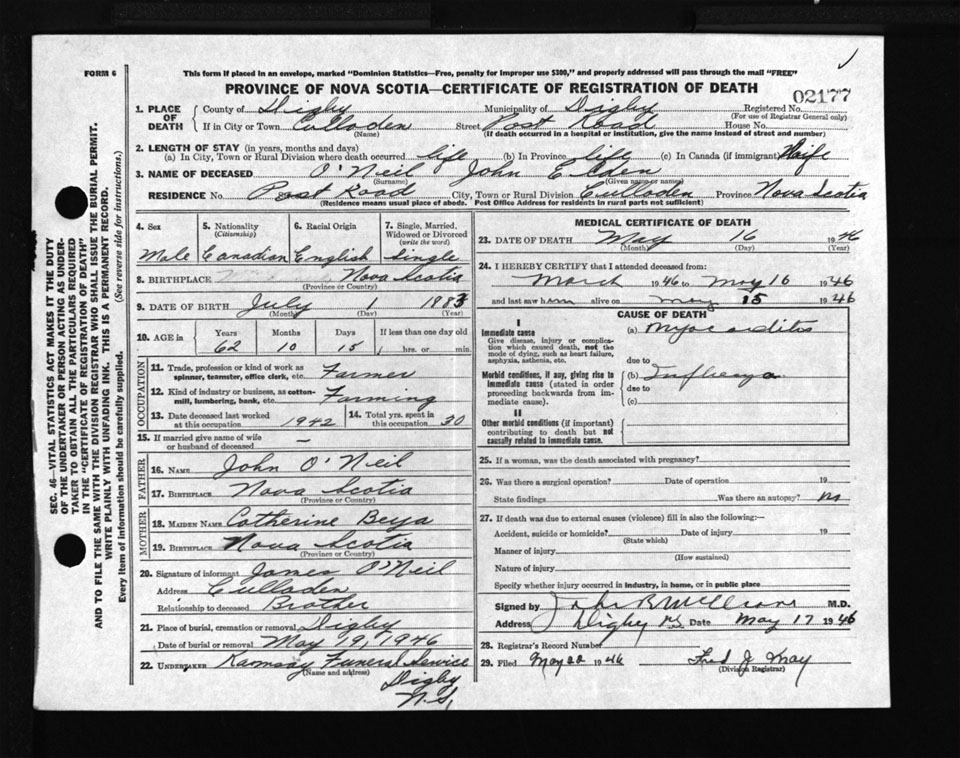 FORM 6
This form if placed in an envelope, marked "Dominion Statistics—Free, penalty for improper use $300," and properly addressed will pass through the mail "FREE"
PROVINCE OF NOVA SCOTIA—CERTIFICATE OF REGISTRATION OF DEATH
02177
1. PLACE OF DEATH County of Digby Municipality of Digby Registered No.
(For use of Registrar General only)
If in City or Town Culloden Street Post Road House No.
(Name) (If death occurred in a hospital or institution, give the name instead of street and number)
2. LENGTH OF STAY (in years, months and days)
(a) In City, Town or Rural Division where death occurred life (b) In Province life (c) In Canada (if immigrant)
3. NAME OF DECEASED O'Neil John Elden
(Surname) (Given name or names)
RESIDENCE No. Post Road City, Town or Rural Division Culloden Province Nova Scotia
(Residence means usual place of abode. Post Office Address for residents in rural parts not sufficient)
4. Sex 5. Nationality (Citizenship) 6. Racial Origin 7. Single, Married, Widowed or Divorced (write the word)
Male Canadian English Single
8. BIRTHPLACE Nova Scotia
(Province or Country)
9. DATE OF BIRTH July 1 1883
(Month) (Day) (Year)
10. AGE in Years Months Days If less than one day old
62 10 15 hrs. or min.
OCCUPATION
11. Trade, profession or kind of work as spinner, teamster, office clerk, etc. Farmer
12. Kind of industry or business, as cotton-mill, lumbering, bank, etc. Farming
13. Date deceased last worked at this occupation 1942 14. Total yrs. spent in this occupation 30
15. If married give name of wife or husband of deceased —
FATHER
16. NAME John O'Neil
17. BIRTHPLACE Nova Scotia
(Province or Country)
MOTHER
18. MAIDEN NAME Catherine
19. BIRTHPLACE Nova Scotia
(Province or Country)
20. Signature of informant James O'Neil
Address Culloden
Relationship to deceased Brother
21. Place of burial, cremation or removal Digby
Date of burial or removal May 19, 1946
22. UNDERTAKER Ramsay Funeral Service
(Name and address)
Digby
N.S.
MEDICAL CERTIFICATE OF DEATH
23. DATE OF DEATH May 16 1946
(Month) (Day) (Year)
24. I HEREBY CERTIFY that I attended deceased from:
March 1946 to May 16 1946
and last saw him alive on May 15 1946
CAUSE OF DEATH
I
Immediate cause (a) Myocarditis
Give disease, injury or complication which caused death, not the mode of dying, such as heart failure, asphyxia, asthenia, etc.
due to
Morbid conditions, if any, giving rise to immediate cause (stated in order proceeding backwards from immediate cause). (b) Influenza
due to
(c)
II
Other morbid conditions (if important) contributing to death but not causally related to immediate cause.
25. If a woman, was the death associated with pregnancy?
26. Was there a surgical operation? Date of operation 19
State findings Was there an autopsy? no
27. If death was due to external causes (violence) fill in also the following:—
Accident, suicide or homicide? Date of injury 19
(State which)
Manner of injury
(How sustained)
Nature of injury
Specify whether injury occurred in industry, in home, or in public place
Signed by M.D.
Address Digby NS Date May 17 1946
28. Registrar's Record Number
29. Filed May 22 1946 Fred J. May
(Division Registrar)
SEC. 46—VITAL STATISTICS ACT MAKES IT THE DUTY
OF THE UNDERTAKER OR PERSON ACTING AS UNDERTAKER TO OBTAIN ALL THE PARTICULARS REQUIRED
IN THE "CERTIFICATE OF REGISTRATION OF DEATH"
AND TO FILE THE SAME WITH THE DIVISION REGISTRAR WHO SHALL ISSUE THE BURIAL PERMIT.
WRITE PLAINLY WITH UNFADING INK. THIS IS A PERMANENT RECORD.
Every item of information should be carefully supplied. (See reverse side for instructions.)